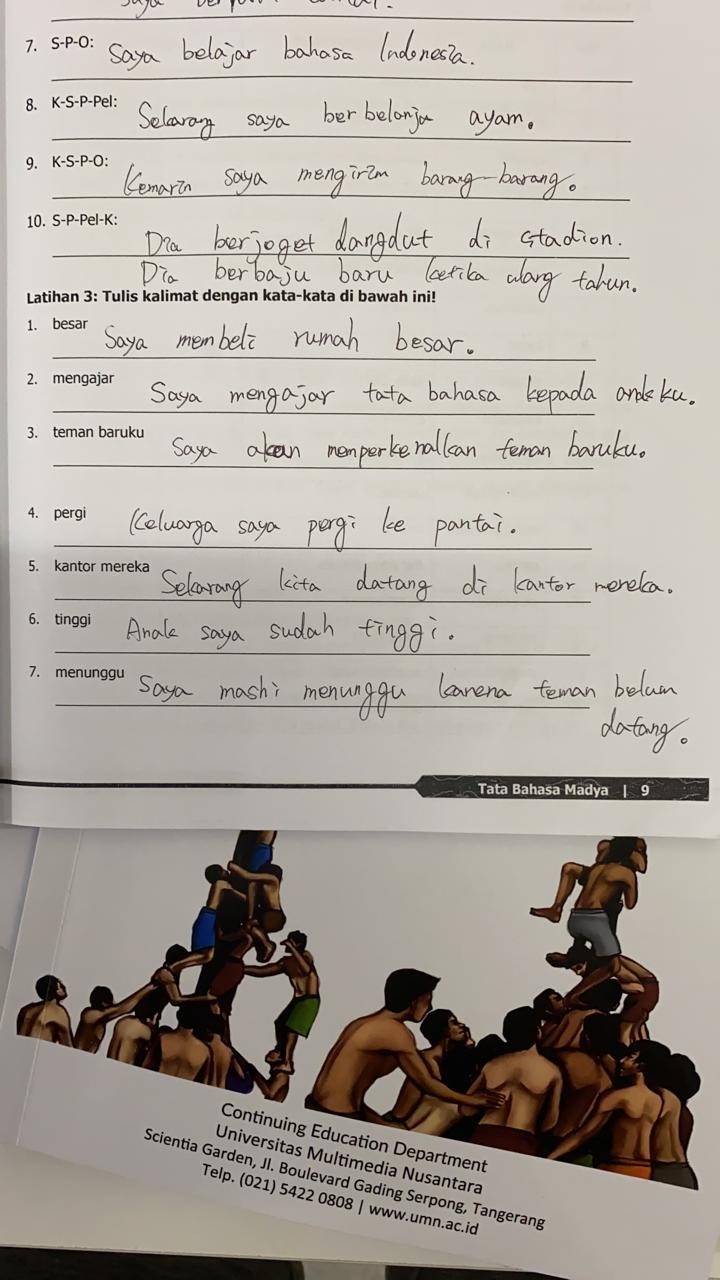 7. S-P-O: Saya belajar bahasa Indonesia.
8. K-S-P-Pel: Sekarang saya berbelanja ayam.
9. K-S-P-O: Kemarin saya mengirim barang-barang.
10. S-P-Pel-K: Dia berjoget dangdut di stadion.
Dia berbaju baru ketika ulang tahun.
Latihan 3: Tulis kalimat dengan kata-kata di bawah ini!
1. besar Saya membeli rumah besar.
2. mengajar Saya mengajar tata bahasa kepada anakku.
3. teman baruku Saya akan memperkenalkan teman baruku.
4. pergi Keluarga saya pergi ke pantai.
5. kantor mereka Sekarang kita datang di kantor mereka.
6. tinggi Anak saya sudah tinggi.
7. menunggu Saya mashi menunggu karena teman belum
datang.
Tata Bahasa Madya | 9
Continuing Education Department
Universitas Multimedia Nusantara
Scientia Garden, Jl. Boulevard Gading Serpong, Tangerang
Telp. (021) 5422 0808 | www.umn.ac.id